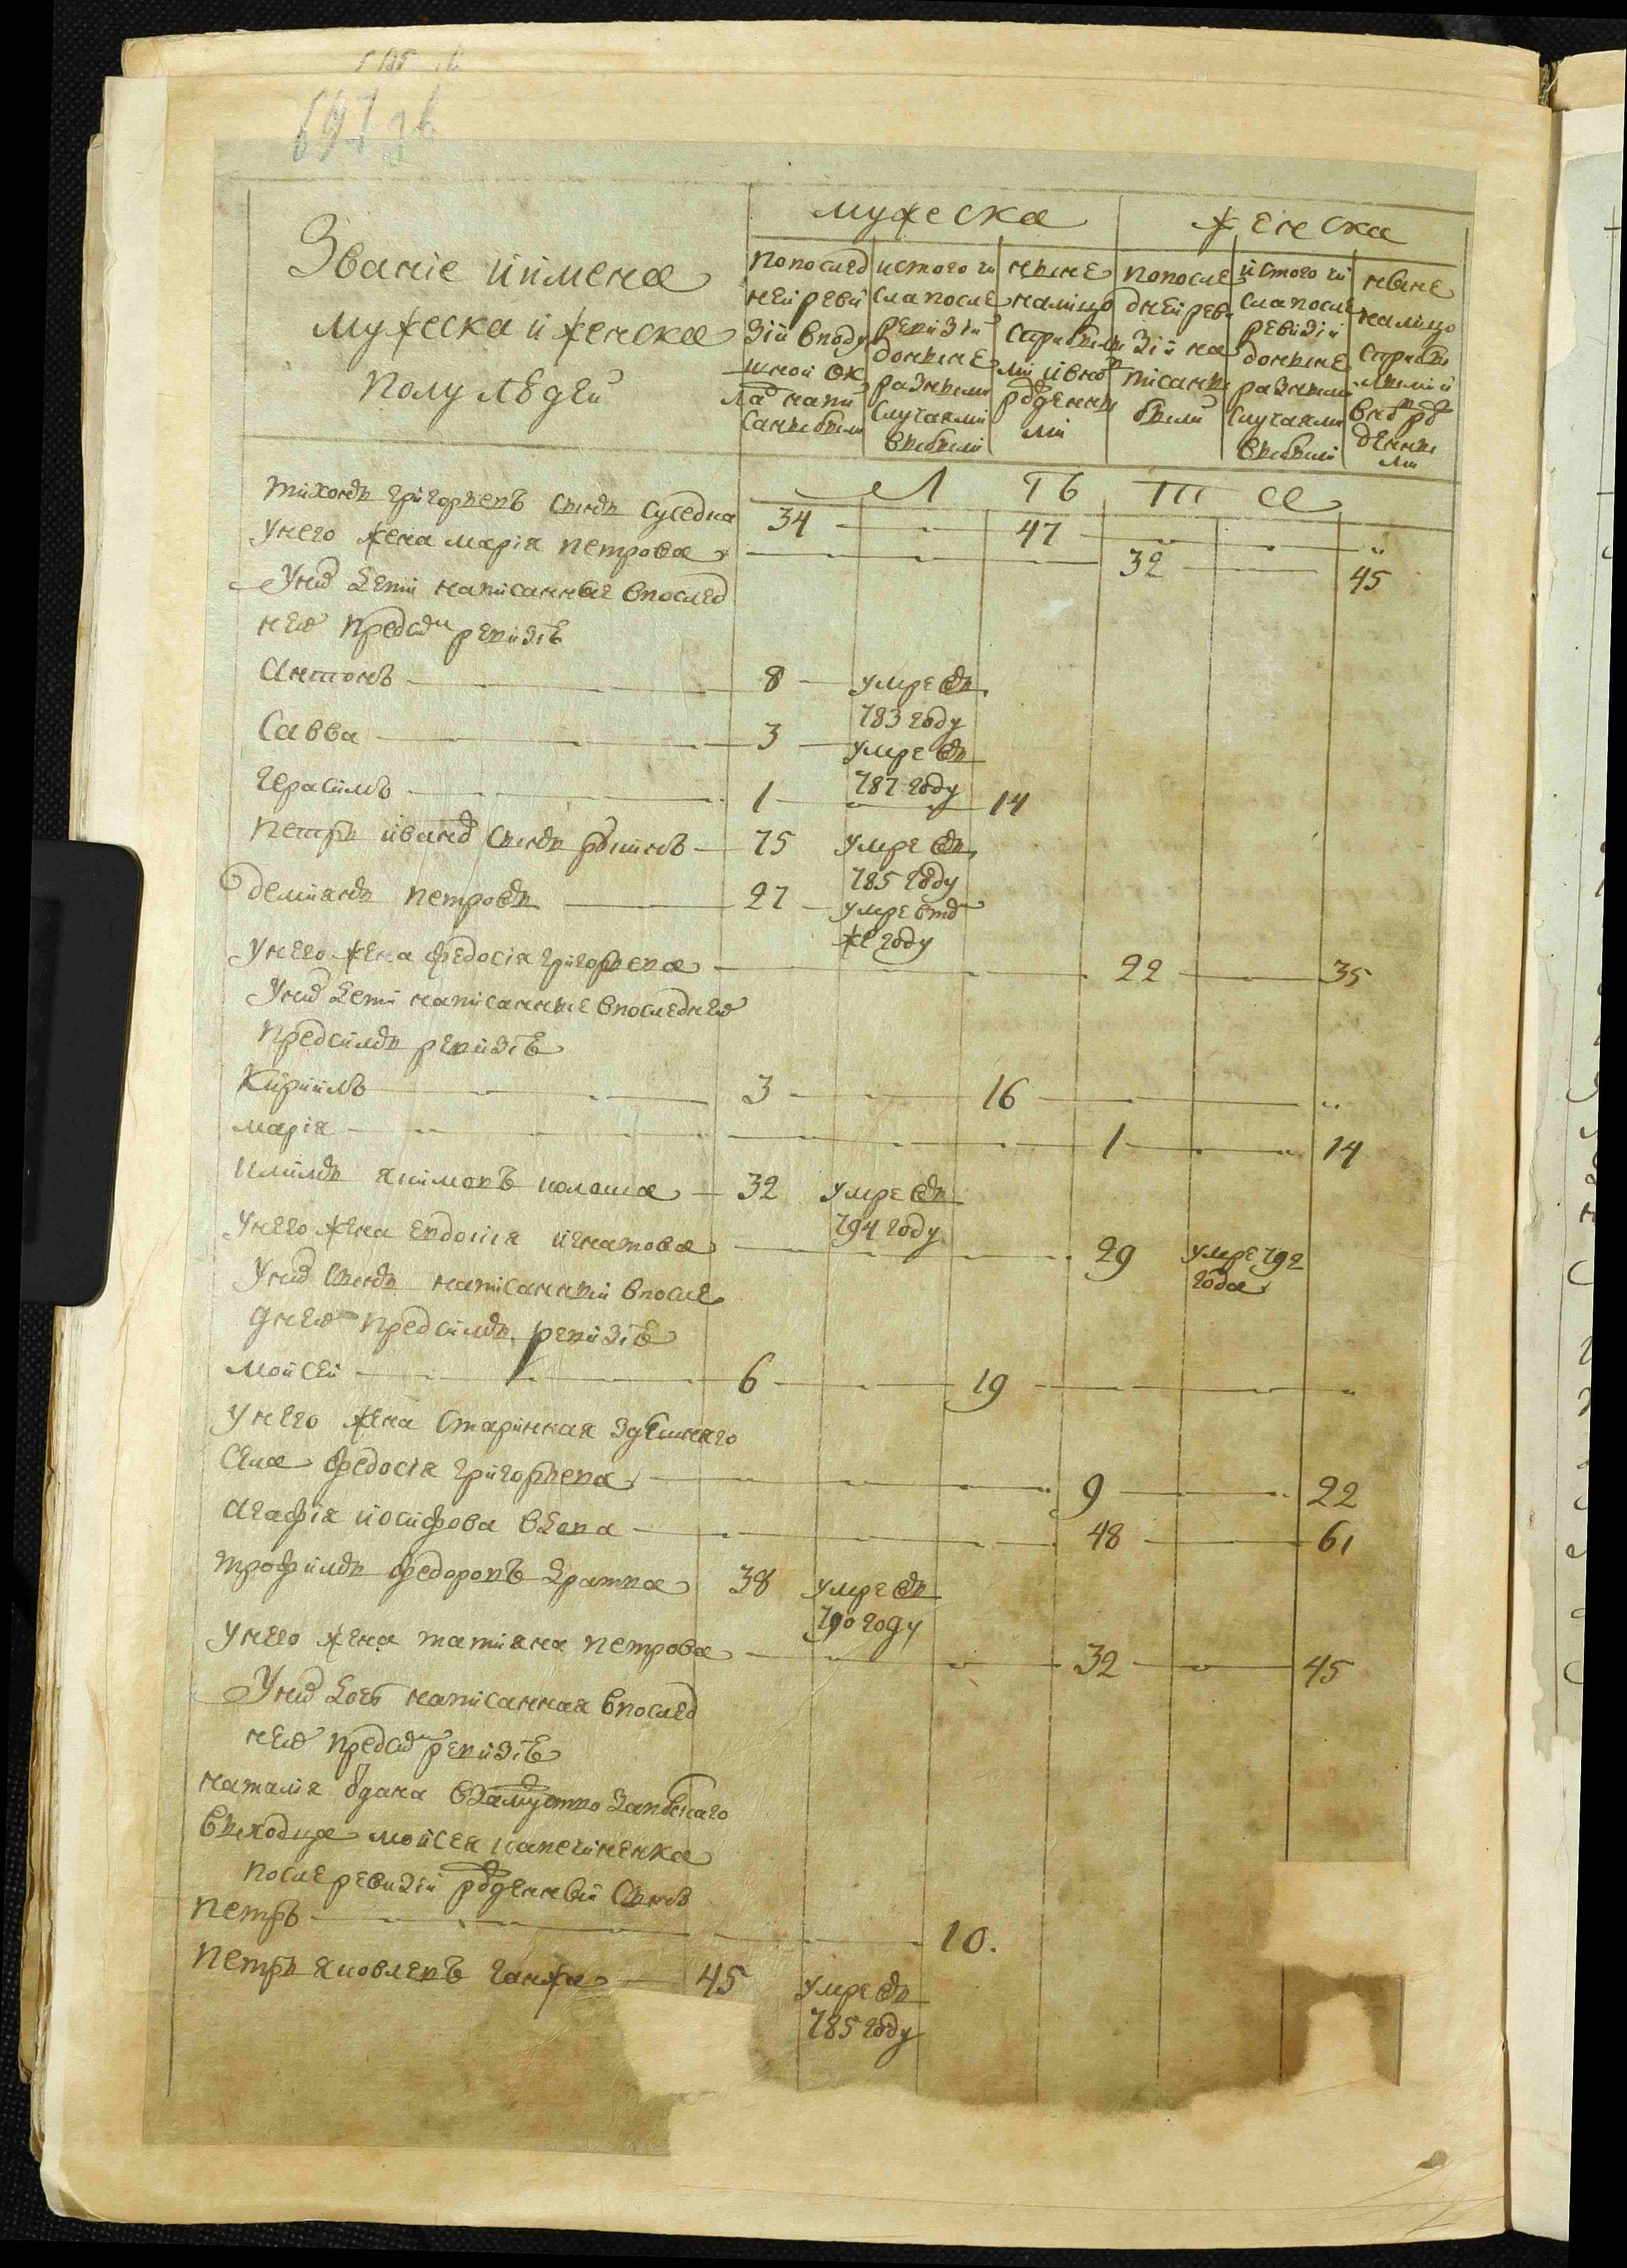 697 зв
мужеска
женска
Званіе и имена
мужеска и женска
полу людей
по послед
ней реви
зіи в поду
шной ок
лад напи
саны были
ис того чи
сла после
ревизіи
до ныне
разными
случаями
выбыли
ныне
на лицо
с прибылы
ми и внов
рожденны
ми
по после
дней реви
зіи на
писаны
были
ис того чи
сла после
ревизіи
до ныне
разными
случаями
выбыли
ныне
на лицо
с прибы
лыми и
внов ро
жденны
ми
Л Т Б Т А
тихонъ григорьевъ сынъ суседка 34 47
у него жена марія петрова 32 45
у них дети написанные в послед
ней пред сим ревизіѣ
антонъ 8 умре въ
783 году
Савва 3 умре въ
787 году
герасимъ 1 14
петръ иванов сынъ 75 умре въ
785 году
демианъ петровъ 27 умре в том
же году
у него жена федосіа григорьева 22 35
у них дети написанные в последней
пред симъ ревизіѣ
Кирилъ 3 16
марія 1 14
климъ якимовъ 32 умре въ
794 году
у него жена евдокія игнатова 29 умре 792
года
у них сынъ написанный в после
дней пред симъ ревизіѣ
мойсей 6 19
у него жена старинная здешнего
села федосіа григорьева 9 22
агафіа иосифова вдова 48 61
трофимъ федоровъ братка 38 умре въ
790 году
у него жена татіана петрова 32 45
у них дочь написанная в послед
ней пред сим ревизіѣ
наталіа отдана в замуство за
выходца мойсея
после ревизіи рожденный сынъ
петръ 10.
петръ яковлевъ ганжа 45 умре въ
785 году